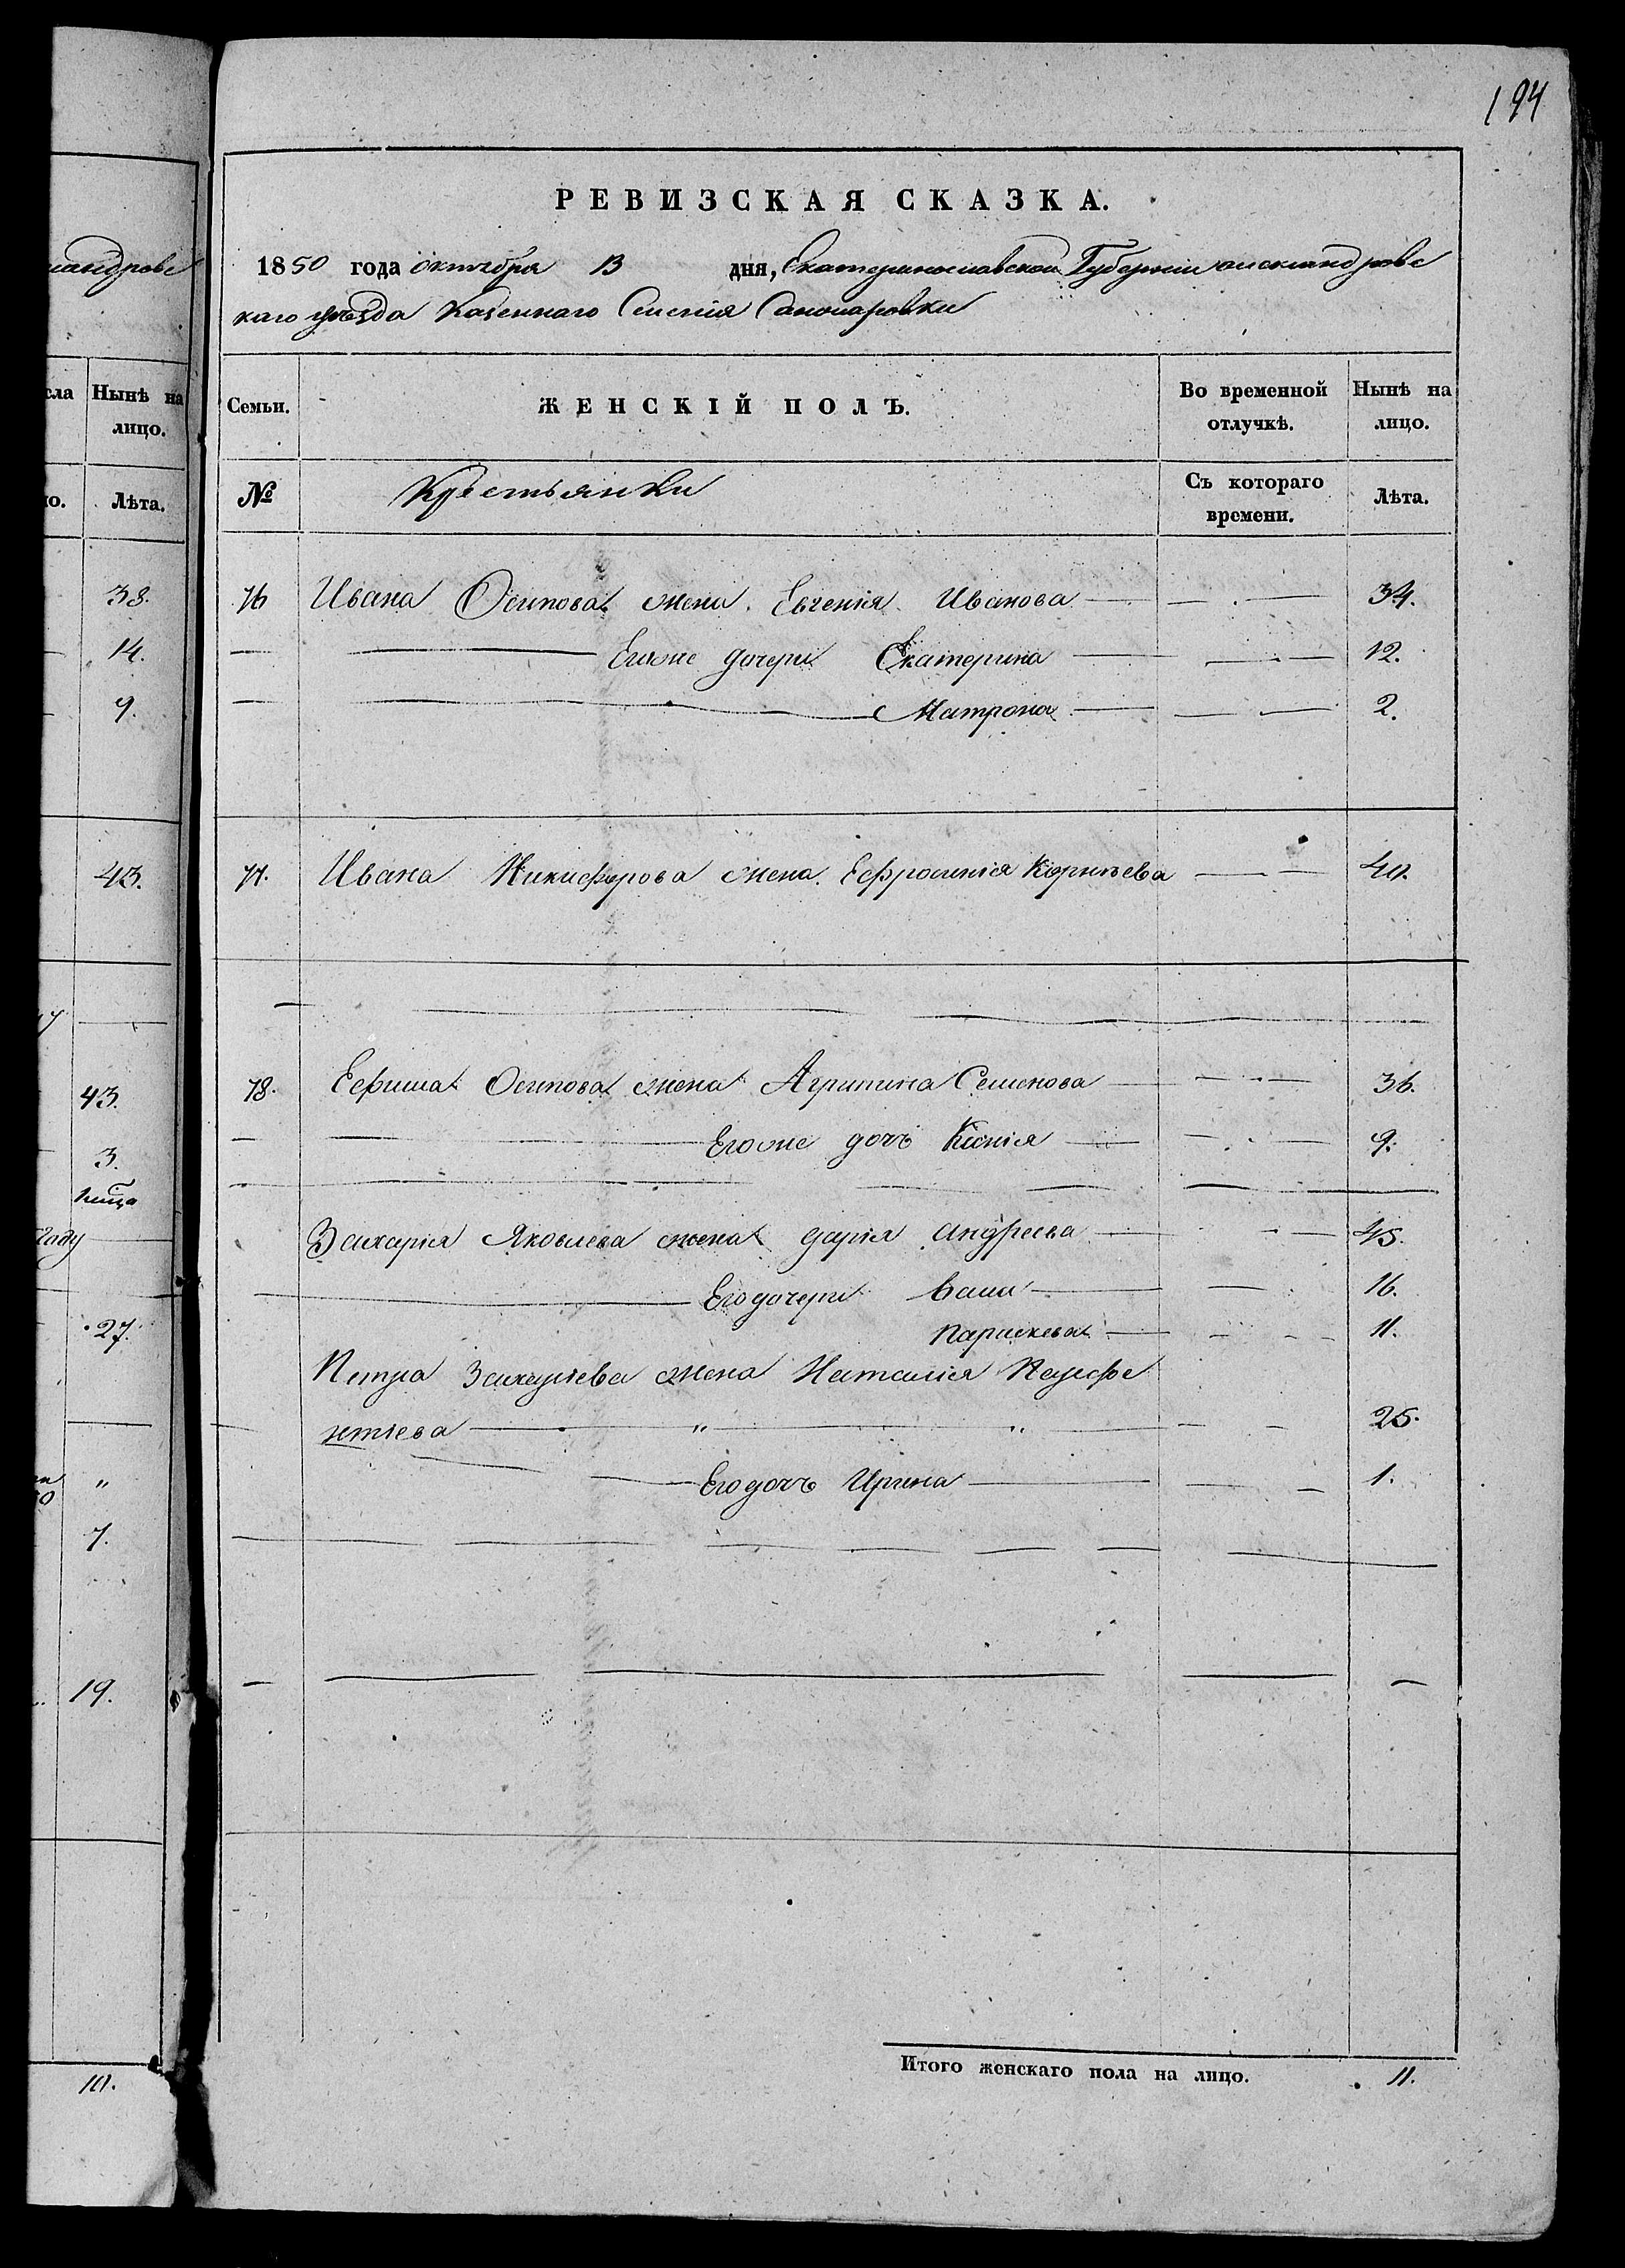 194
РЕВИЗСКАЯ СКАЗКА.
1850 года октября 13 дня, Екатеринославской Губернiи александровс
каго уѣзда Казеннаго Селенiя
Семьи.
ЖЕНСКІЙ ПОЛЪ.
Во временной отлучкѣ.
Нынѣ на лицо.
№
Крестьянки
Съ котораго времени.
Лѣта.
76 Ивана Осипова жена Евгенiя Иванова 34.
Егоже дочери Екатерина 12.
Матрона 2.
77. Ивана Никифорова жена Ефросинiя Корнѣева 40.
78. Ефима Осипова жена Агрипина Семенова 36.
Егоже дочь Ксенiя 9.
Захарiя Яковлева жена дарiя андреева 45.
Его дочери 16.
параскева 11.
Петра Захарiева жена Наталiя
нтiева " " 25.
Его дочь Ирина 1.
Итого женскаго пола на лицо. 11.
мандровс
сла
Нынѣ на лицо.
ло.
Лѣта.
38.
14.
9.
43.
43.
3.
году
27.
"
7.
19.
10.